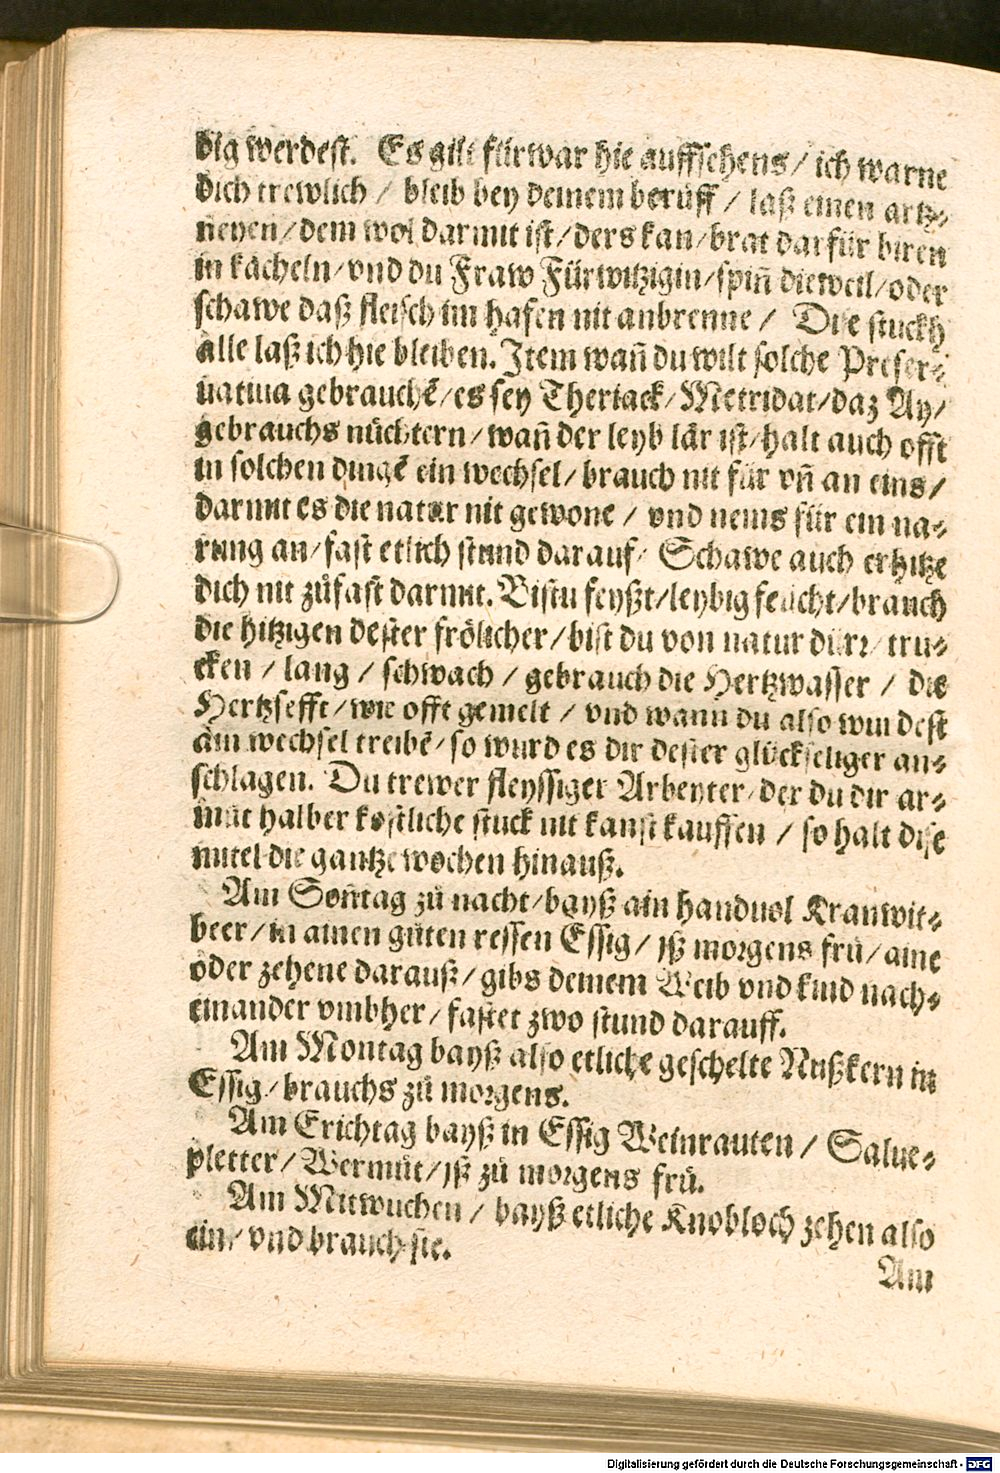 dig werdest. Es gilt fürwar hie auffsehens/ ich warne
dich trewlich / bleib bey deinem berůff / laß einen artz-
neyen/ dem wol darmit ist/ ders kan/ brat darfür biren
in kächeln/ vnd du Fraw Fürwitzigin/ spiñ dieweil/ oder
schawe daß fleisch im hafen nit anbrenne / Dise stuckh
alle laß ich hie bleiben. Item wañ du wilt solche Preser-
uatiua gebrauchē/ es sey Theriack/ Metridat/ daz Ay/
gebrauchs nüchtern/ wañ der leyb lär ist/ halt auch offt
in solchen dingē ein wechsel/ brauch nit für vñ an eins/
darmit es die natur nit gewone / vnd nems für ein na-
rung an/ fast etlich stund darauf/ Schawe auch erhitze
dich nit zůfast darmit. Bistu feyßt/ leybig feücht/ brauch
die hitzigen dester frölicher/ bist du von natur dürr/ tru-
cken / lang / schwach / gebrauch die Hertzwasser / die
Hertzsefft/ wie offt gemelt / vnd wann du also wirdest
am wechsel treibē/ so wurd es dir dester glückseliger an-
schlagen. Du trewer fleyssiger Arbeyter/ der du dir ar-
můt halber köstliche stuck nit kanst kauffen / so halt dise
mitel die gantze wochen hinauß.
Am Soñtag zů nacht/ bayß ain handuol Kranwit-
beer/ in ainen gůten ressen Essig/ jß morgens frü/ aine
oder zehene darauß/ gibs deinem Weib vnd kind nach-
einander vmbher/ fastet zwo stund darauff.
Am Montag bayß also etliche geschelte Nußkern in
Essig/ brauchs zů morgens.
Am Erichtag bayß in Essig Weinrauten / Salue-
pletter/ Wermůt/ jß zů morgens frü.
Am Mitwuchen / bayß etliche Knobloch zehen also
ein/ vnd brauch sie.
Am
Digitalisierung gefördert durch die Deutsche Forschungsgemeinschaft - DFG